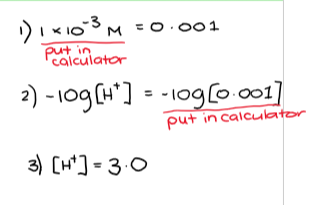 1) 1 × 10⁻³ M = 0.001
put in calculator
2) -log[H⁺] = -log[0.001]
put in calculator
3) [H⁺] = 3.0